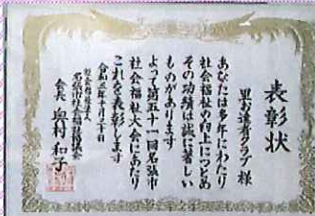 表彰状
里お達者クラブ 様
あなたは多年にわたり
社会福祉の向上につとめ
その功績は誠に著しい
ものがあります
よって第五十一回名張市
社会福祉大会にあたり
これを表彰します
令和三年十月三十日
社会福祉法人
名張市社会福祉協議会
会長 奥村 和子